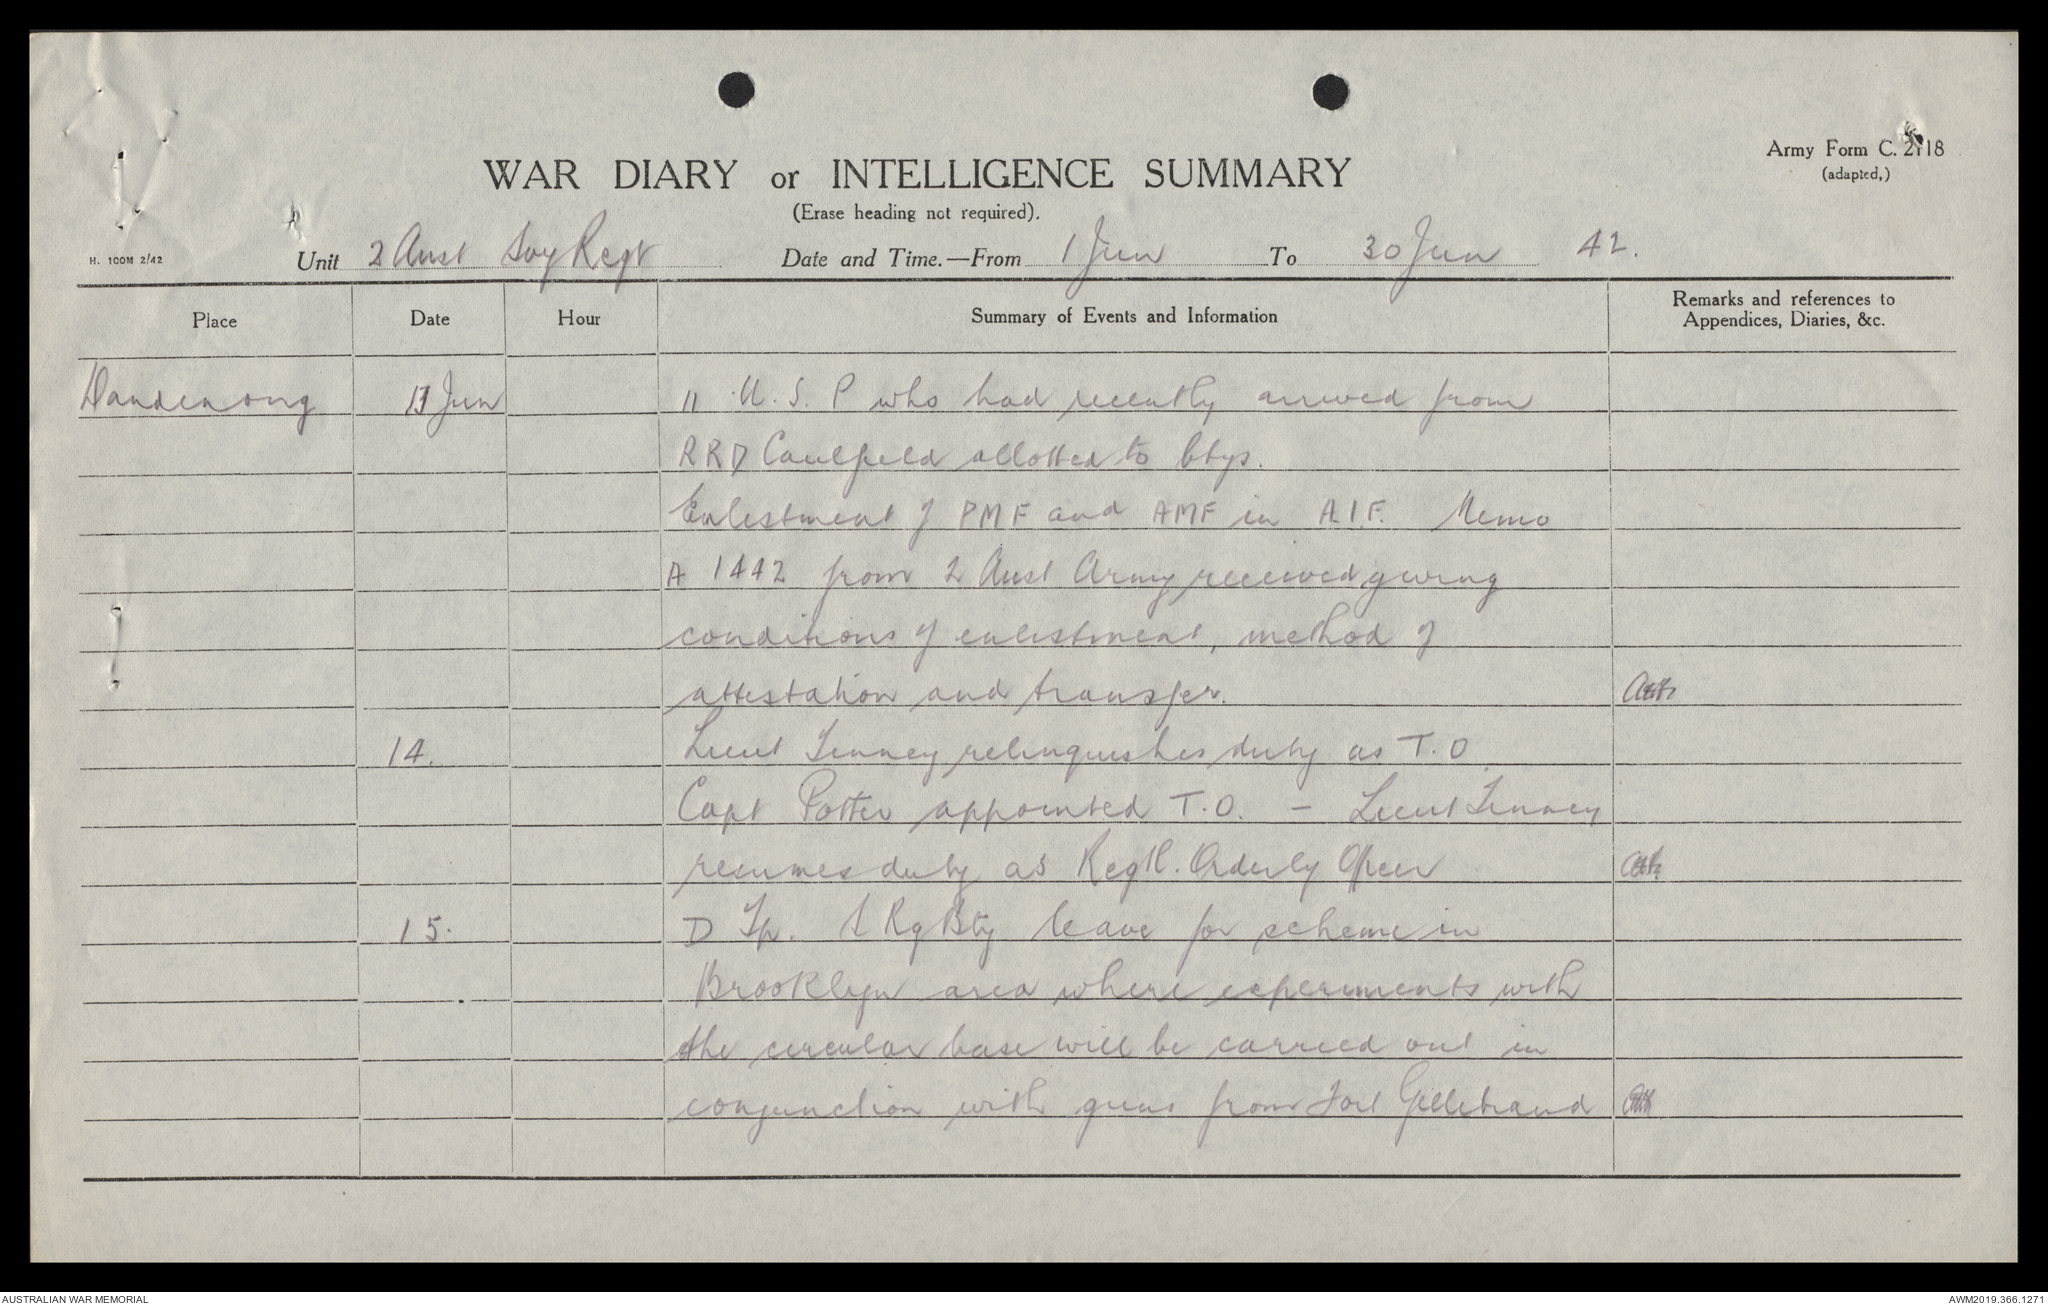 Army Form C. 2118
(adapted,)
WAR DIARY or INTELLIGENCE SUMMARY
(Erase heading not required).
H. 100M 2/42
Unit 2 Aust Svy Regt Date and Time.—From 1 Jun To 30 Jun 42.
Place Date Hour Summary of Events and Information Remarks and references to Appendices, Diaries, &c.
Dandenong 13 Jun 11 U.S.P who had recently arrived from
RRD Caulfield allotted to btys.
Enlistment of PMF and AMF in A.I.F. Memo
A 1442 from 2 Aust Army received giving
conditions of enlistment, method of
attestation and transfer.
14. Lieut relinquishes duty as T.O.
Capt Potter appointed T.O. - Lieut
resumes duty as Regtl. Orderly Officer
15. D Tp. S Rg Bty leave for scheme in
Brooklyn area where experiments with
the circular base will be carried out in
conjunction with guns from Fort Gellibrand
AUSTRALIAN WAR MEMORIAL
AWM2019.366.1271